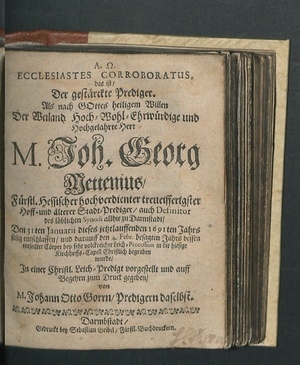 Α. Ω.
ECCLESIASTES CORROBORATUS,
das ist/
Der gestärckte Prediger.
Als nach GOttes heiligem Willen
Der Weiland Hoch-Wohl-Ehrwürdige und
Hochgelahrte Herr
M. Joh. Georg
Vettenius/
Fürstl. Hessischer hochverdienter treueifferigster
Hoff- und älterer Stadt-Prediger/ auch Definitor
des löblichen Synodi allhie zu Darmstadt/
Den 31ten Januarii dieses jetztlauffenden 1691ten Jahrs
selig entschlaffen/ und darauff den 4. Febr. besagten Jahrs dessen
Cörper bey sehr volckreicher Leich-Procession in der hiesige
Kirchhoffs-Capell Christlich begraben
wurde/
In einer Christl. Leich-Predigt vorgestellt und auff
Begehren zum Druck gegeben/
von
M. Johann Otto Gorrn/ Predigern daselbst.
Darmbstadt/
Gedruckt bey Sebastian Griebel/ Fürstl. Buchdruckern.